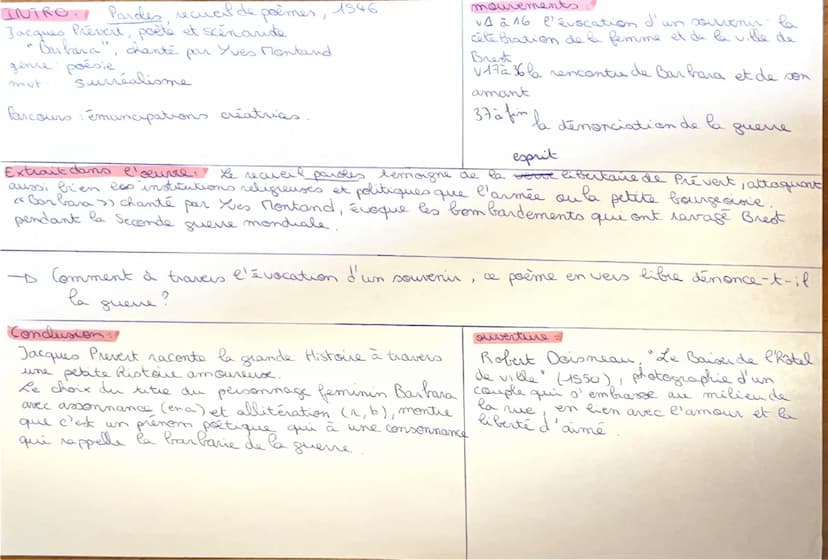 INTRO : Paroles, recueil de poèmes, 1946
Jacques Prévert, poète et scénariste
"Barbara", chanté par Yves Montand
genre : poésie
mvt : surréalisme
Parcours : émancipations créatrices.
mouvements :
v1 à 16 l'évocation d'un souvenir : la
célébration de la femme et de la ville de
Brest
v17 à 36 la rencontre de Barbara et de son
amant
37 à fin la dénonciation de la guerre
Extrait dans l'oeuvre : Le recueil paroles témoigne de la esprit libertaire de Prévert, attaquant
aussi bien les institutions religieuses et politiques que l'armée ou la petite bourgeoisie.
"Barbara" chanté par Yves Montand, évoque les bombardements qui ont ravagé Brest
pendant la Seconde guerre mondiale.
→ Comment à travers l'évocation d'un souvenir, ce poème en vers libre dénonce-t-il
la guerre ?
Conclusion :
Jacques Prevert raconte la grande Histoire à travers
une petite histoire amoureuse.
Le choix du titre du personnage féminin Barbara
avec assonnance (en a) et allitération (r, b), montre
que c'est un prénom poétique qui à une consonnance
qui rappelle la barbarie de la guerre.
ouverture :
Robert Doisneau, "Le Baiser de l'Hotel
de ville" (1950), photographie d'un
couple qui s'embrasse au milieu de
la rue, en lien avec l'amour et la
liberté d'aimé.